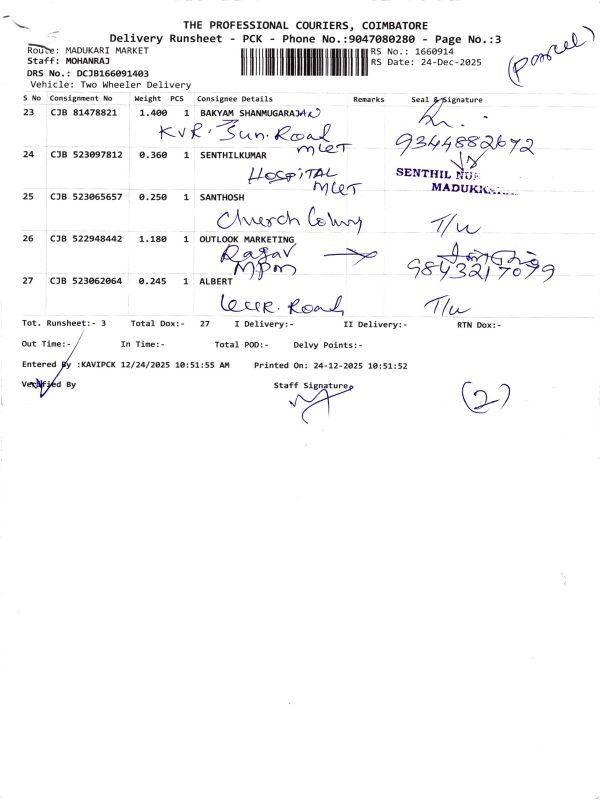 THE PROFESSIONAL COURIERS, COIMBATORE
Delivery Runsheet - PCK - Phone No.:9047080280 - Page No.:3
(parcel)
Route: MADUKARI MARKET
RS No.: 1660914
Staff: MOHANRAJ
RS Date: 24-Dec-2025
DRS No.: DCJB166091403
Vehicle: Two Wheeler Delivery
S No Consignment No Weight PCS Consignee Details Remarks Seal & Signature
23 CJB 81478821 1.400 1 BAKYAM SHANMUGARAJAN
KVR. Road
MLET
9344882672
24 CJB 523097812 0.360 1 SENTHILKUMAR
HOSPITAL
MLET
SENTHIL
25 CJB 523065657 0.250 1 SANTHOSH
Church Colony T/W
26 CJB 522948442 1.180 1 OUTLOOK MARKETING
Ragav
Mpm
9843217099
27 CJB 523062064 0.245 1 ALBERT
Road T/W
Tot. Runsheet:- 3 Total Dox:- 27 I Delivery:- II Delivery:- RTN Dox:-
Out Time:- In Time:- Total POD:- Delvy Points:-
Entered By :KAVIPCK 12/24/2025 10:51:55 AM Printed On: 24-12-2025 10:51:52
Verified By Staff Signature
(2)